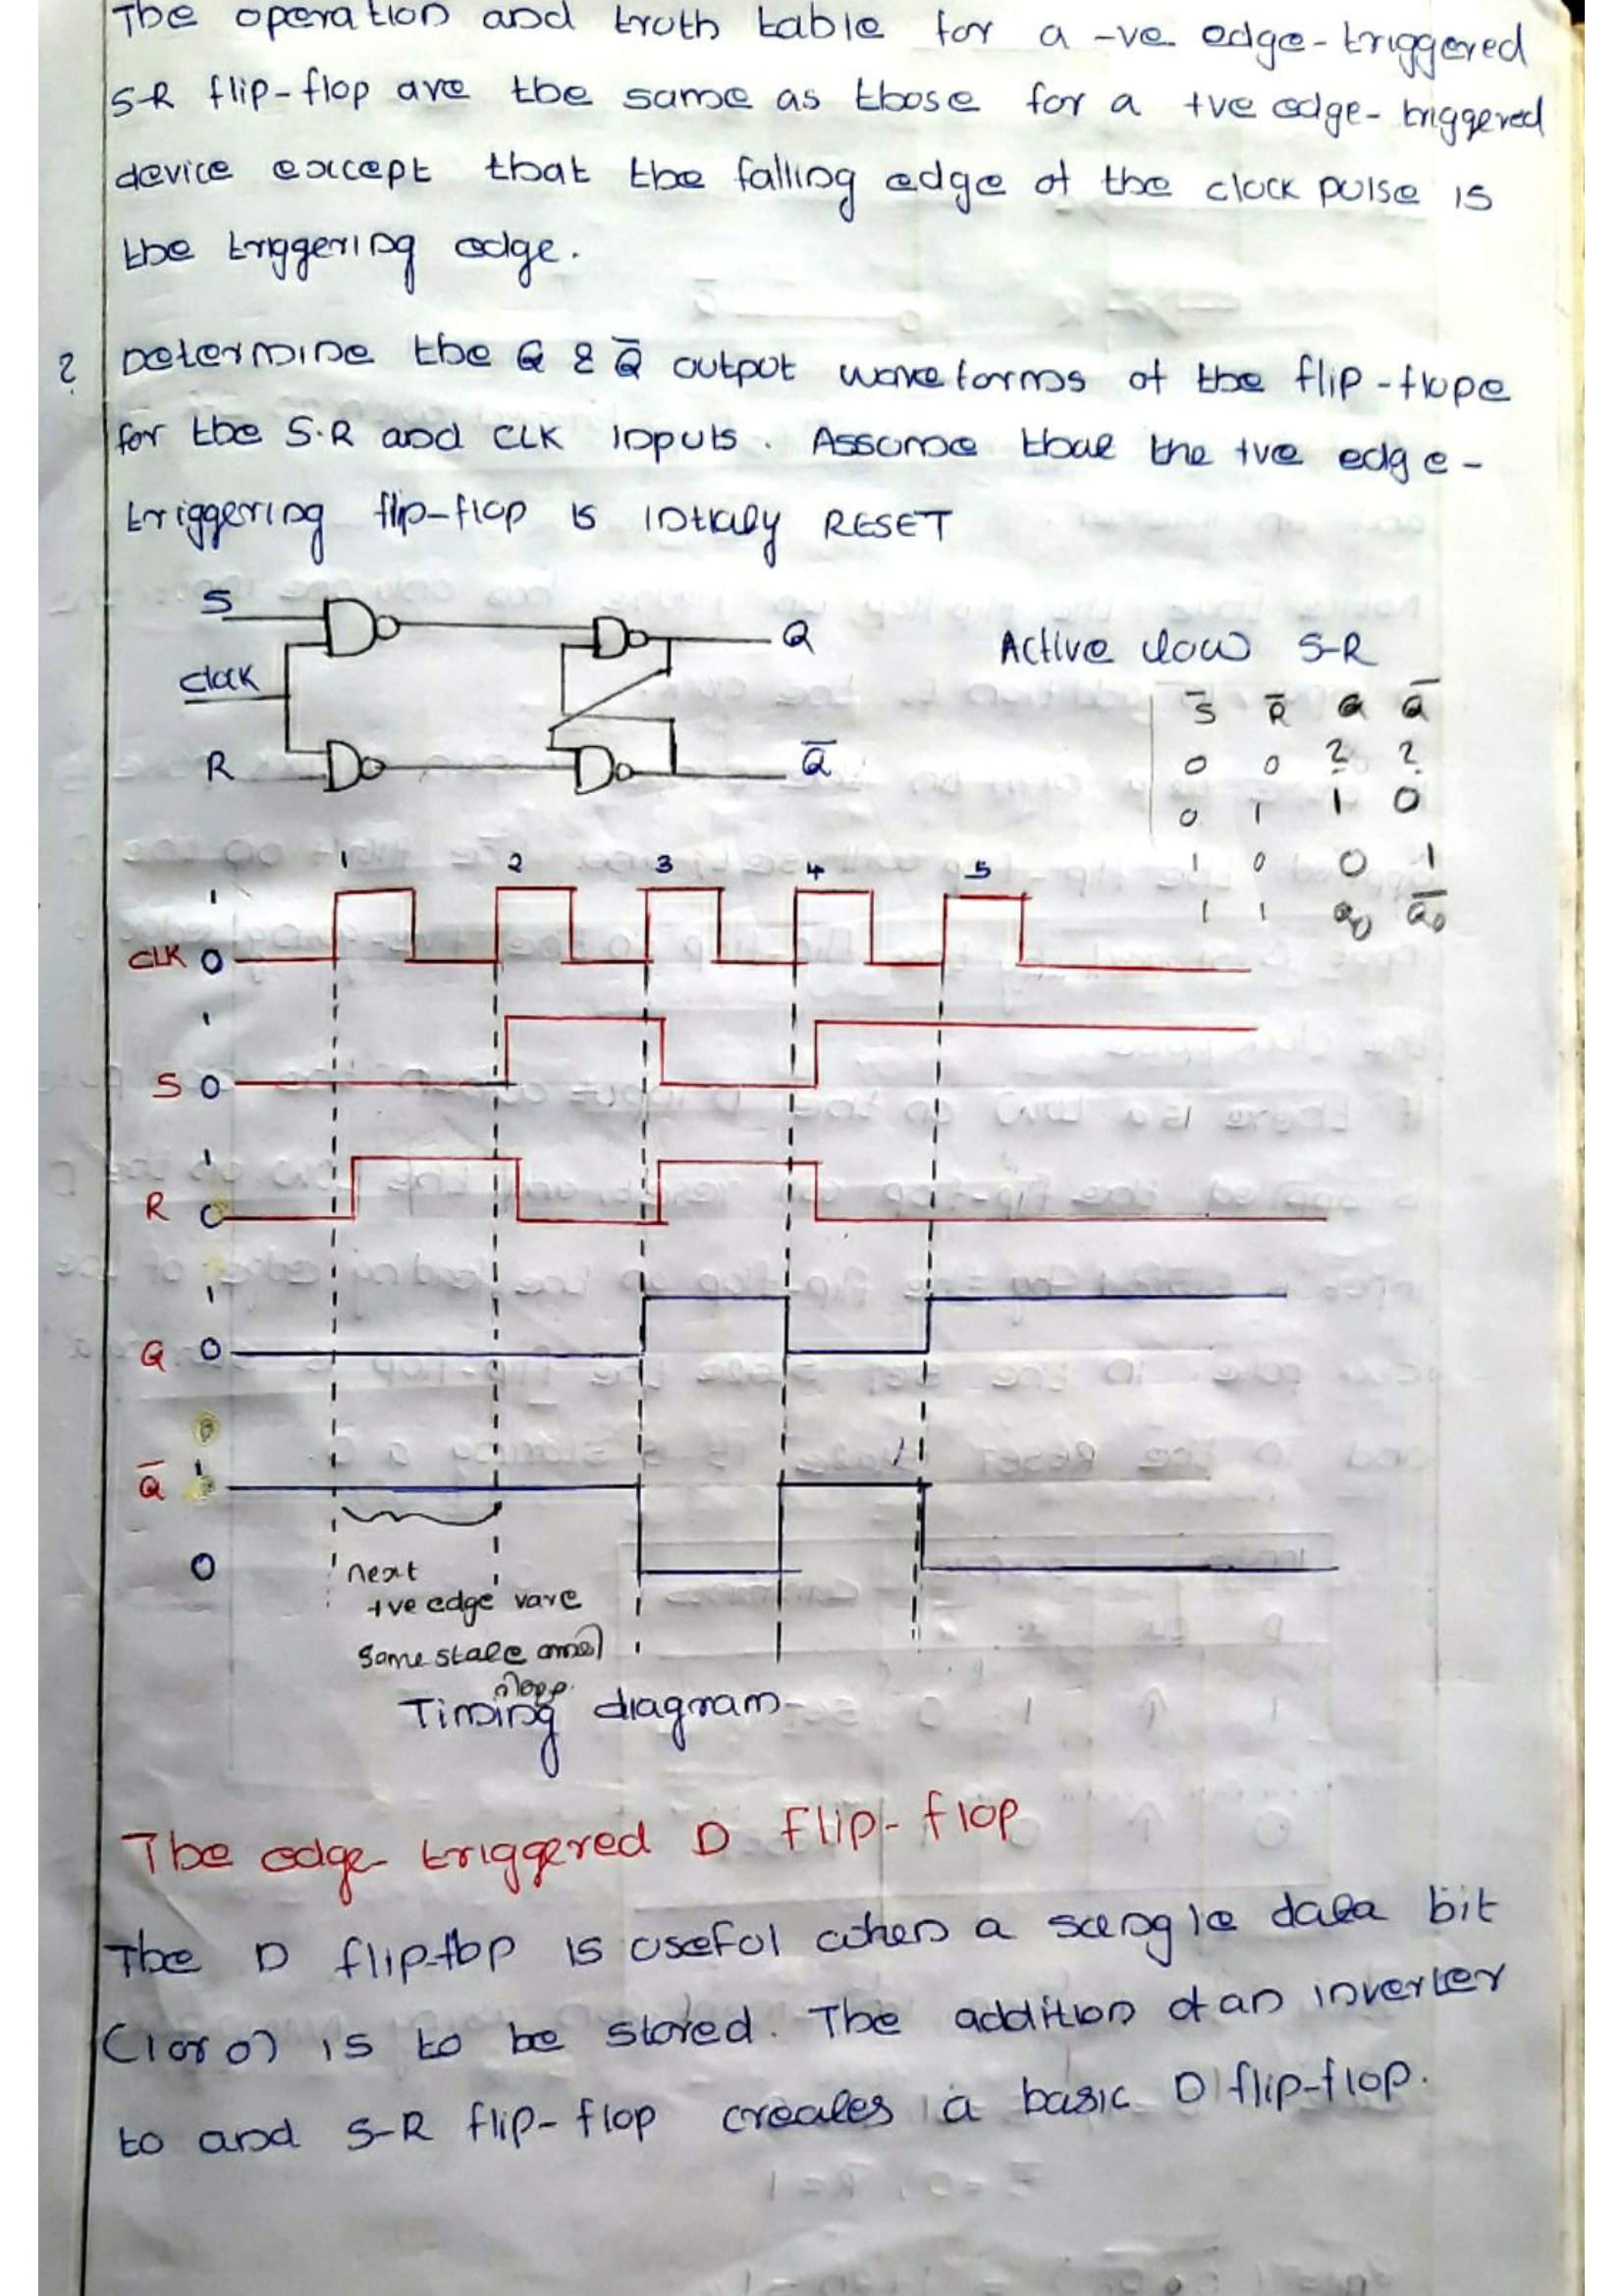 The operation and truth table for a -ve edge-triggered
S-R flip-flop are the same as those for a +ve edge-triggered
device except that the falling edge of the clock pulse is
the triggering edge.
? Determine the Q & Q̅ output waveforms of the flip-flope
for the S.R and CLK inputs. Assume that the +ve edge-
triggering flip-flop is RESET
S
Q
clock
R
Q̅
Active low S-R
S̅ R̅ Q Q̅
0 0 ? ?
0 1 1 0
1 0 0 1
1 1 Q0 Q̅0
1 2 3 4 5
1
CLK 0
1
S 0
1
R 0
1
Q 0
Q̅ 1
0
next
+ve edge vare
Same state
Timing diagram
The edge triggered D flip-flop
The D flip-flop is useful when a single data bit
(1 or 0) is to be stored. The addition of an inverter
to and S-R flip-flop creates a basic D flip-flop.